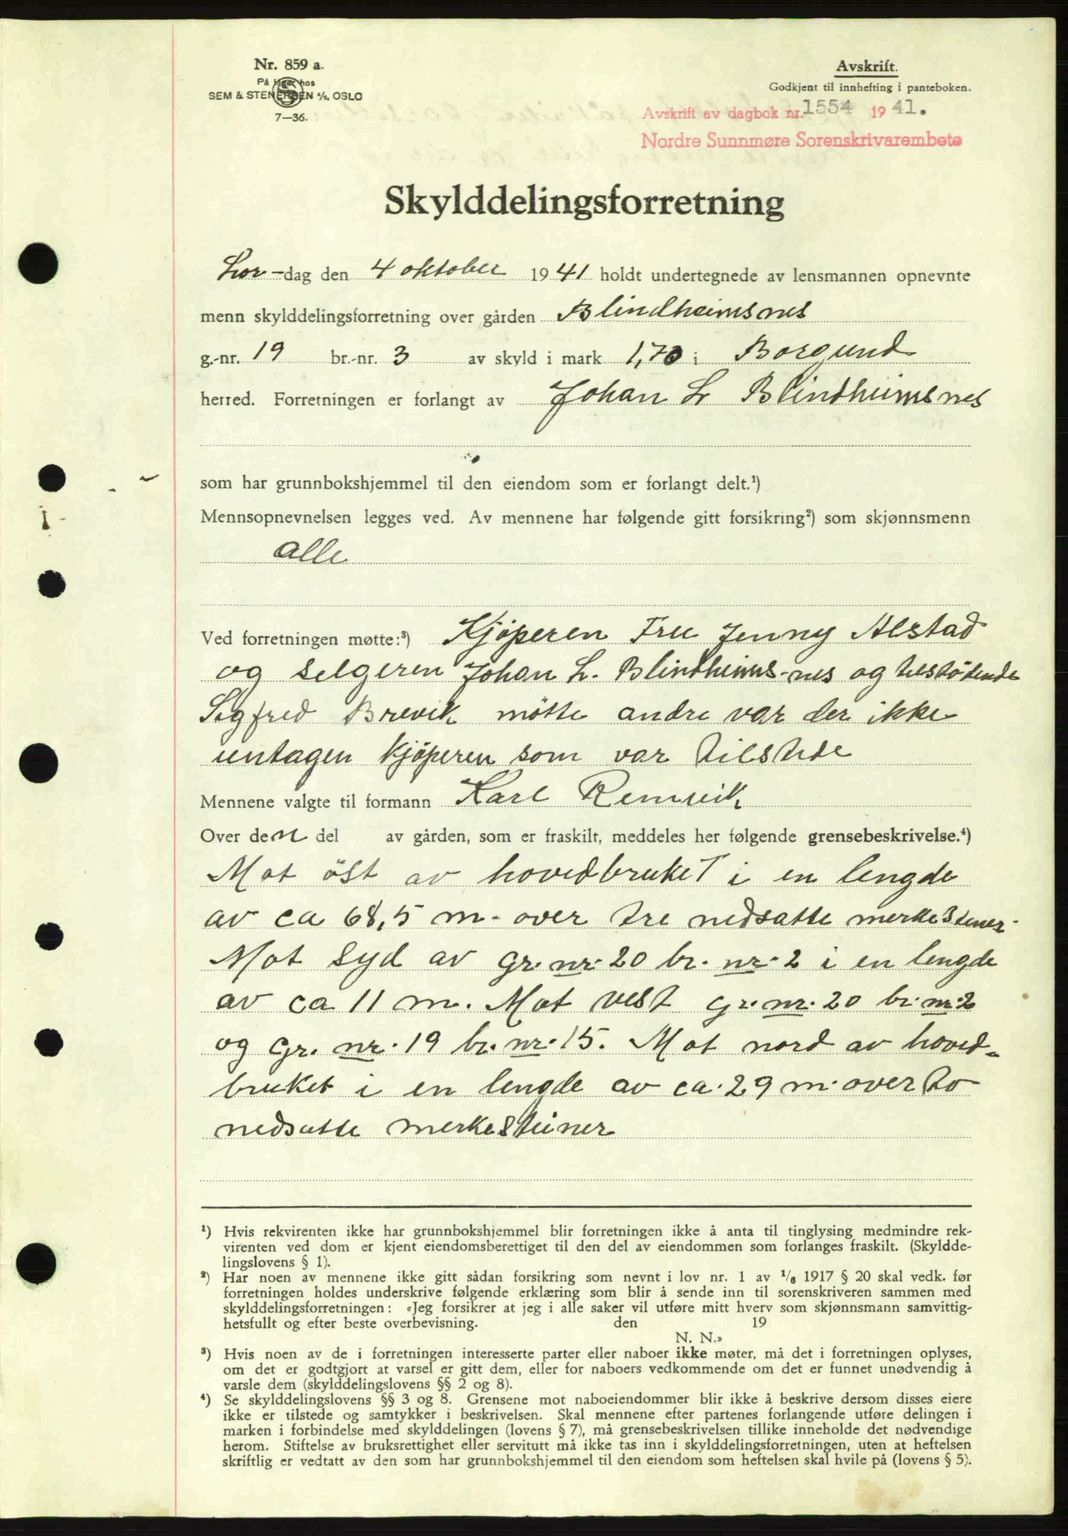 Nr. 859 a.
På lager hos
SEM & STENERSEN A/S, OSLO
7—36.
Avskrift.
Godkjent til innhefting i panteboken.
Avskrift av dagbok nr. 1554 1941.
Nordre Sunnmøre Sorenskrivarembete
Skylddelingsforretning
Lør-dag den 4 oktober 1941 holdt undertegnede av lensmannen opnevnte
menn skylddelingsforretning over gården Blindheimsnes
g.-nr. 19 br.-nr. 3 av skyld i mark 1,70 i Borgund
herred. Forretningen er forlangt av Johan L Blindheimsnes
som har grunnbokshjemmel til den eiendom som er forlangt delt.¹)
Mennsopnevnelsen legges ved. Av mennene har følgende gitt forsikring²) som skjønnsmenn
alle
Ved forretningen møtte:³) Kjöperen Fru Jenny Alstad
og selgeren Johan L. Blindheims-nes og tilstötende
Sigfred Brevik mötte andre var der ikke
untagen kjöperen som var tilstede
Mennene valgte til formann Karl Remvik
Over den del av gården, som er fraskilt, meddeles her følgende grensebeskrivelse.⁴)
Mot öst av hovedbruket i en lengde
av ca 68,5 m. over tre nedsatte merkestener.
Mot Syd av gr. nr. 20 br. nr. 2 i en lengde
av ca 11 m. Mot vest gr. nr. 20 br. nr. 2
og gr. nr. 19 br. nr. 15. Mot nord av hoved-
bruket i en lengde av ca. 29 m. over to
nedsatte merkesteiner
¹) Hvis rekvirenten ikke har grunnbokshjemmel blir forretningen ikke å anta til tinglysing medmindre rek-
virenten ved dom er kjent eiendomsberettiget til den del av eiendommen som forlanges fraskilt. (Skyldde-
lingslovens § 1).
²) Har noen av mennene ikke gitt sådan forsikring som nevnt i lov nr. 1 av 1/6 1917 § 20 skal vedk. før
forretningen holdes underskrive følgende erklæring som blir å sende inn til sorenskriveren sammen med
skylddelingsforretningen: «Jeg forsikrer at jeg i alle saker vil utføre mitt hverv som skjønnsmann samvittig-
hetsfullt og efter beste overbevisning. den 19
N. N.»
³) Hvis noen av de i forretningen interesserte parter eller naboer ikke møter, må det i forretningen oplyses,
om det er godtgjort at varsel er gitt dem, eller for naboers vedkommende om det er funnet unødvendig å
varsle dem (skylddelingslovens §§ 2 og 8).
⁴) Se skylddelingslovens §§ 3 og 8. Grensene mot naboeiendommer blir ikke å beskrive dersom disses eiere
ikke er tilstede og samtykker i beskrivelsen. Skal mennene efter partenes forlangende utføre delingen i
marken i forbindelse med skylddelingen (lovens § 7), må grensebeskrivelsen tillike inneholde det nødvendige
herom. Stiftelse av bruksrettighet eller servitutt må ikke tas inn i skylddelingsforretningen, uten at heftelsen
skriftlig er vedtatt av den som har grunnbokshjemmel til den eiendom som heftelsen skal hvile på (lovens § 5).